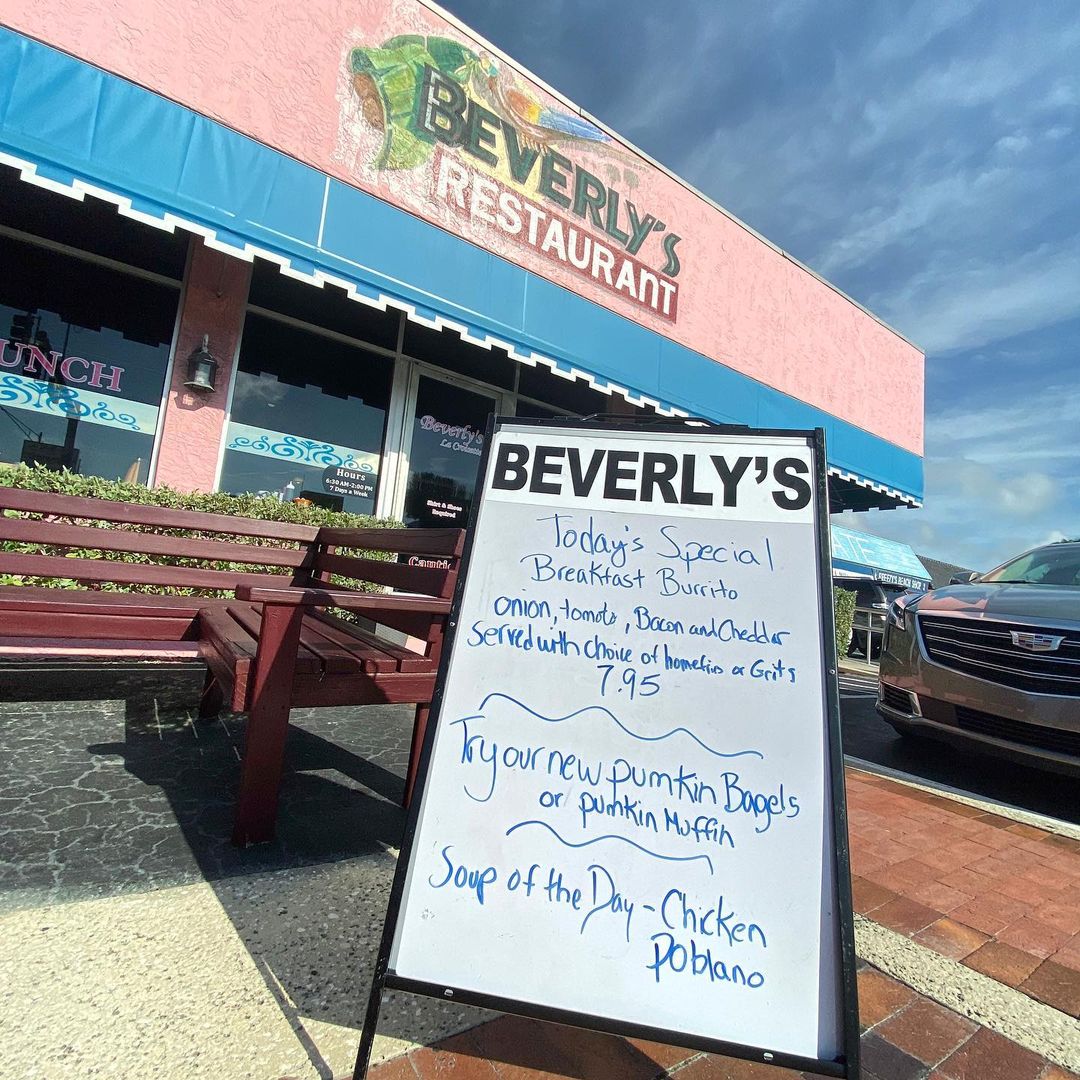 BEVERLY'S
RESTAURANT
UNCH
Beverly's
La Croisette
Hours
6:30 AM-2:00 PM
7 Days a Week
Shirt & Shoes
Required
Cauti
ATE
BREEZY'S BEACH SHOP
BEVERLY'S
Today's Special
Breakfast Burrito
onion, tomato, Bacon and Cheddar
Served with choice of homefries or Grits
7.95
Try our new pumkin Bagels
or pumkin Muffin
Soup of the Day - Chicken
Poblano